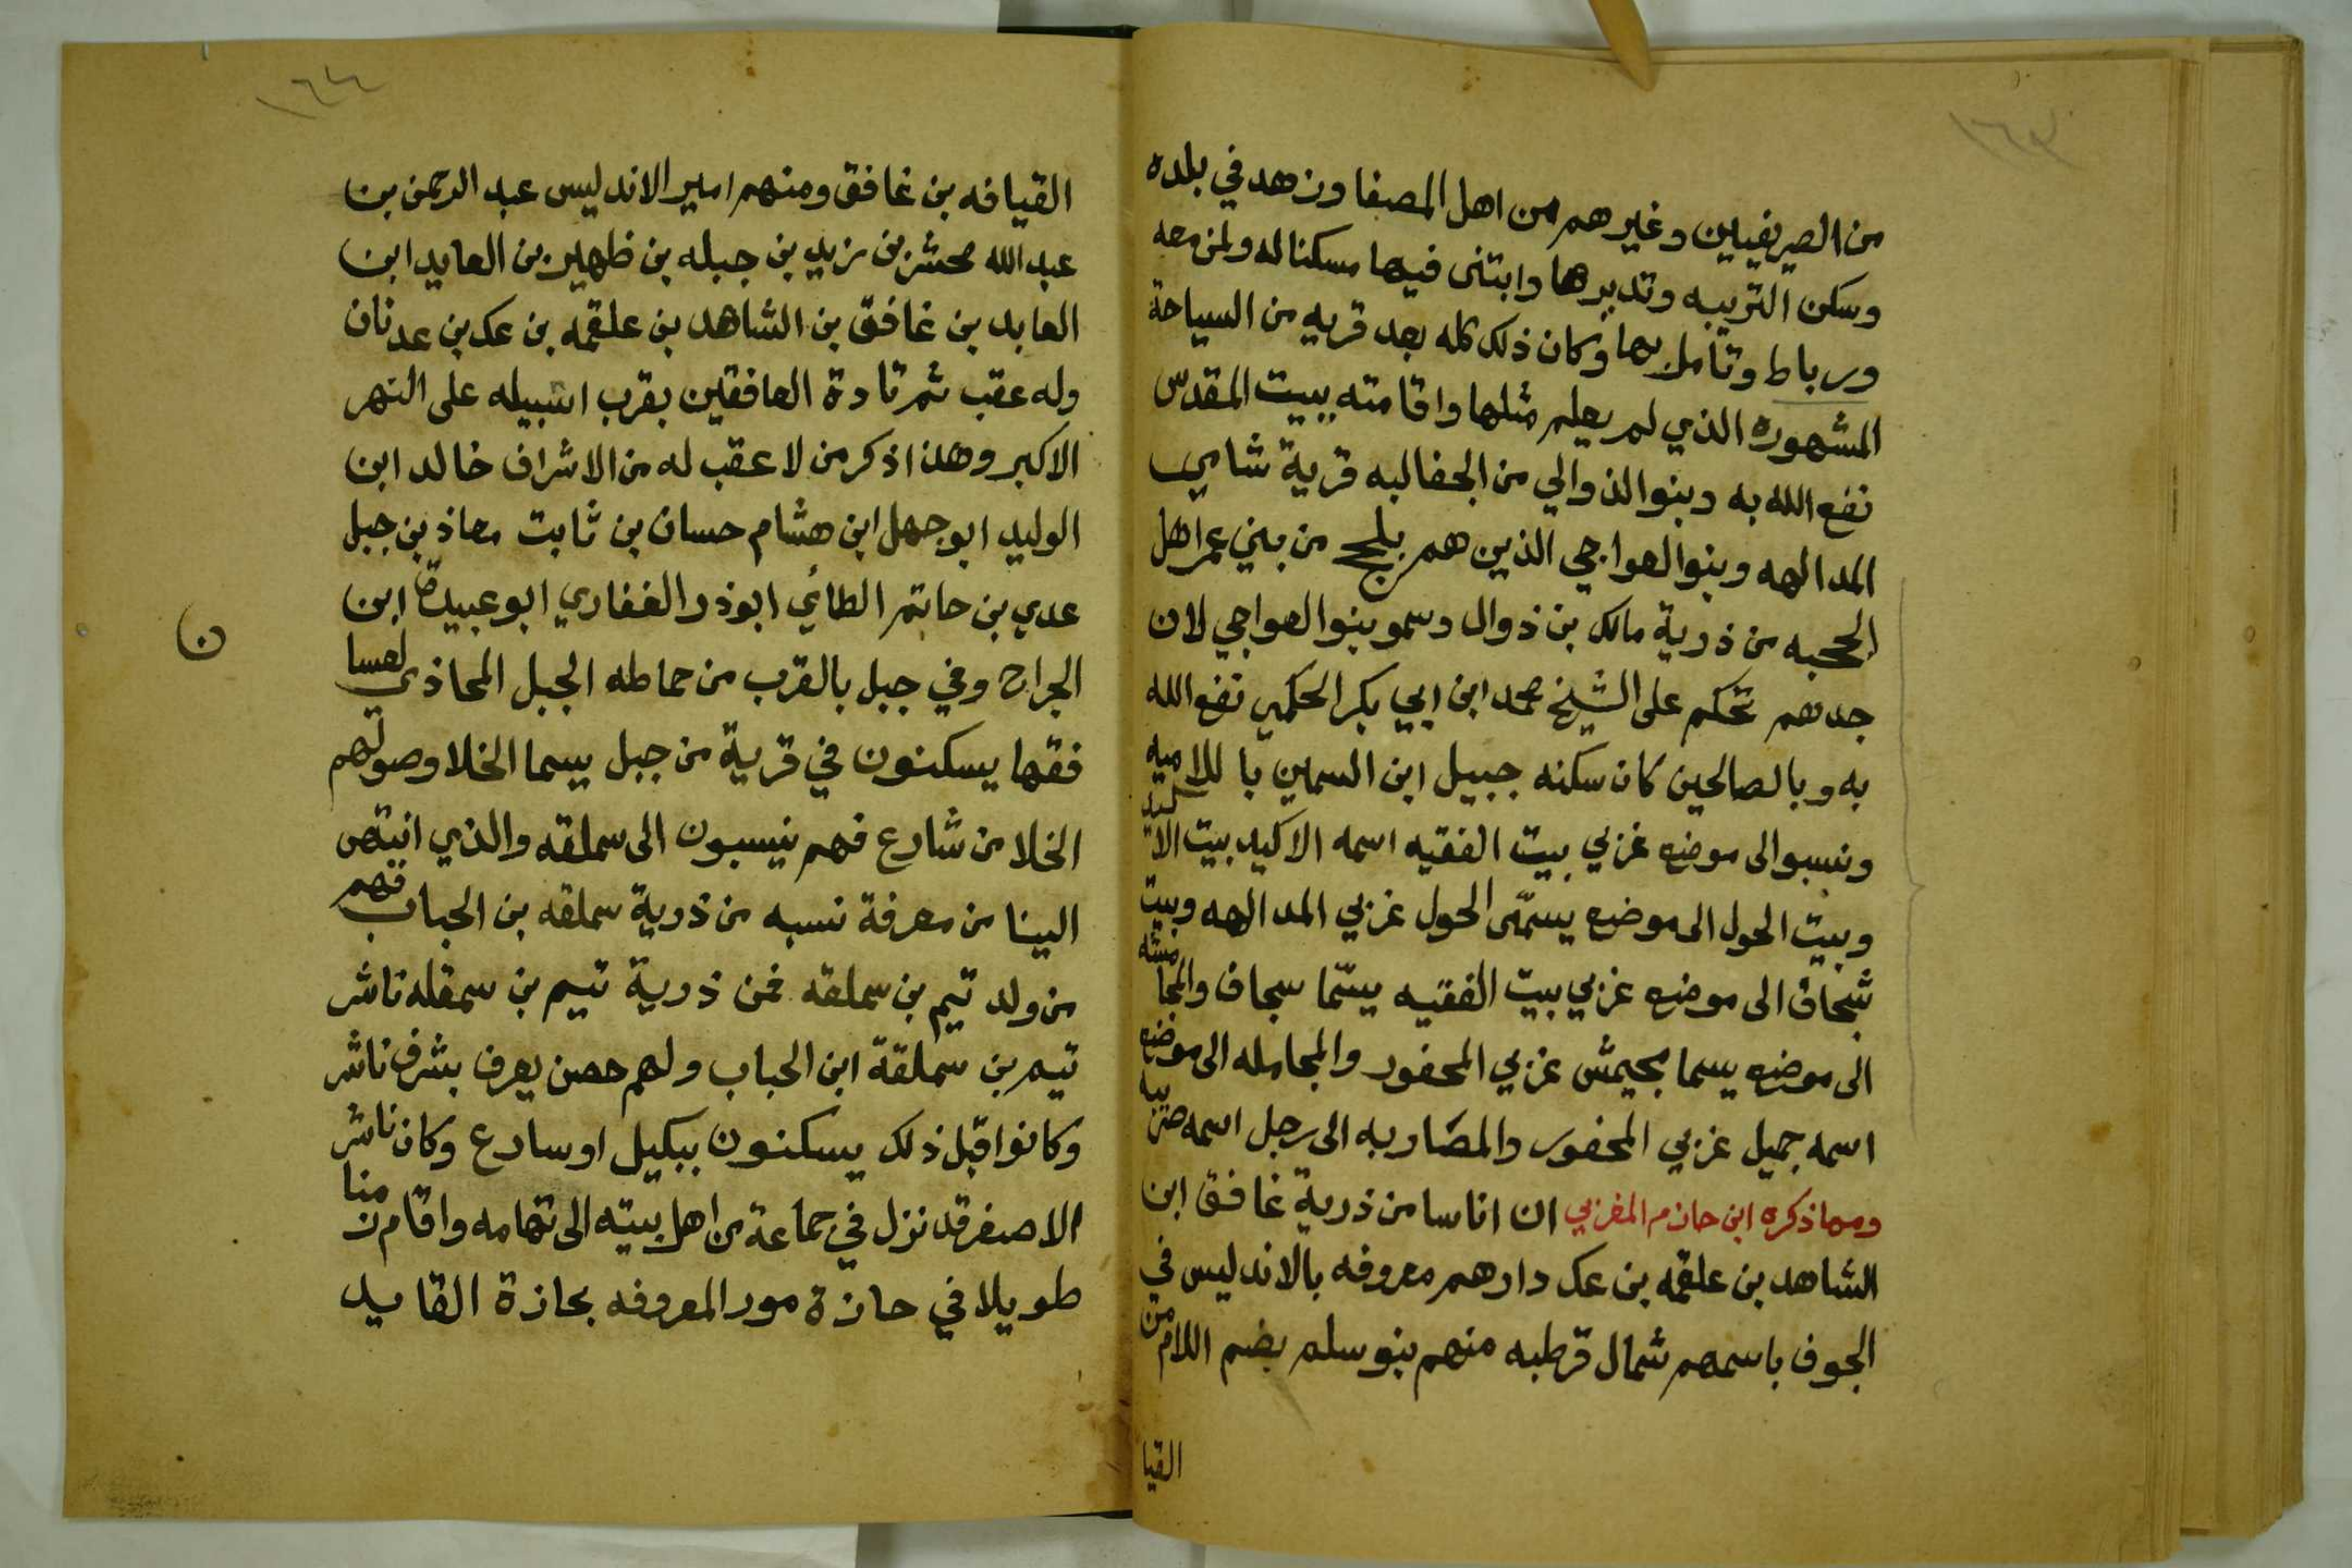 ١٦٣
من الصريفيين وغيرهم من اهل المصفا وزهد في بلده
وسكن التربيه وتديرها وابتنى فيها مسكنا له ولمن معه
ورباط وتأمل بها وكان ذلك كله بعد قربه من السياحة
المشهوره الذي لم يعلم مثلها واقامته ببيت المقدس
نفع الله به وبنوا الذوالي من الجفالبه قرية شامي
المدالهه وبنوا العواجي الذين هم بلحج من بني عم اهل
الححبه من ذرية مالك بن ذوال وسمو بنوا العواجي لان
جدهم تحكم على الشيخ محمد ابن ابي بكر الحكمي نفع الله
به وبالصالحين كان سكنه جبيل ابن السمين باللاميه
ونسبوا الى موضع غربي بيت الفقيه اسمه الاكيد بيت الاكيد
وبيت الحول الى موضع يسمّى الحول غربي المدالهه وبيت
شجاف الى موضع غربي بيت الفقيه يسمّا سجاف والمجامشه
الى موضع يسما بجيمش غربي المحفور والمجامله الى موضع
اسمه جميل غربي المحفور والمضاربه الى رجل اسمه
ومما ذكره ابن حازم المغربي ان اناسا من ذرية غافق ابن
الشاهد بن علقمه بن عك دارهم معروفه بالاندليس في
الجوف باسمهم شمال قرطبه منهم بنو سلم بضم اللام من
القيا
١٦٤
القيافه بن غافق ومنهم امير الاندليس عبد الرحمن بن
عبد الله محشر بن زيد بن جبله بن ظهير بن العايد ابن
العابد بن غافق بن الشاهد بن علقمه بن عك بن عدنان
وله عقب ثم تادة العافقين بقرب اشبيله على النهر
الاكبر وهذا ذكر من لا عقب له من الاشراف خالد ابن
الوليد ابو جهل ابن هشام حسان بن ثابت معاذ بن جبل
عدي بن حاتم الطائي ابوذر الغفاري ابو عبيدة ابن
الجراح وفي جبل بالقرب من حماطه الجبل المحاذي لعسا
ن
فقها يسكنون في قرية من جبل يسما الخلا وصولهم
الخلا من شارع فهم ينسبون الى سملقه والذي انتهى
الينا من معرفة نسبه من ذرية سملقه بن الحباب فهم
من ولد تيم بن سملقه فمن ذرية تيم بن سمقله ناشر
تيم بن سملقة ابن الحباب ولهم حصن يعرف بشرف ناشر
وكانوا قبل ذلك يسكنون ببكيل او سارع وكان ناشر
الاصغر قد نزل في جماعة من اهل بيته الى تهامه واقام زمنا
طويلا في حازة مور المعروفه بحازة القايد